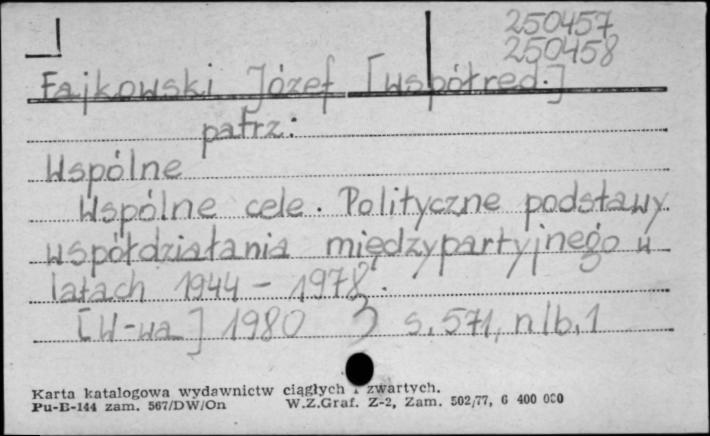 250457
250458
Fajkowski Józef [współred.]
patrz:
Wspólne
Wspólne cele. Polityczne podstawy
współdziałania międzypartyjnego w
latach 1944 - 1978.
[W-wa] 1980 s. 571, nlb. 1
Karta katalogowa wydawnictw ciągłych i zwartych.
Pu-B-144 zam. 567/DW/On W.Z.Graf. Z-2, Zam. 502/77, 6 400 000